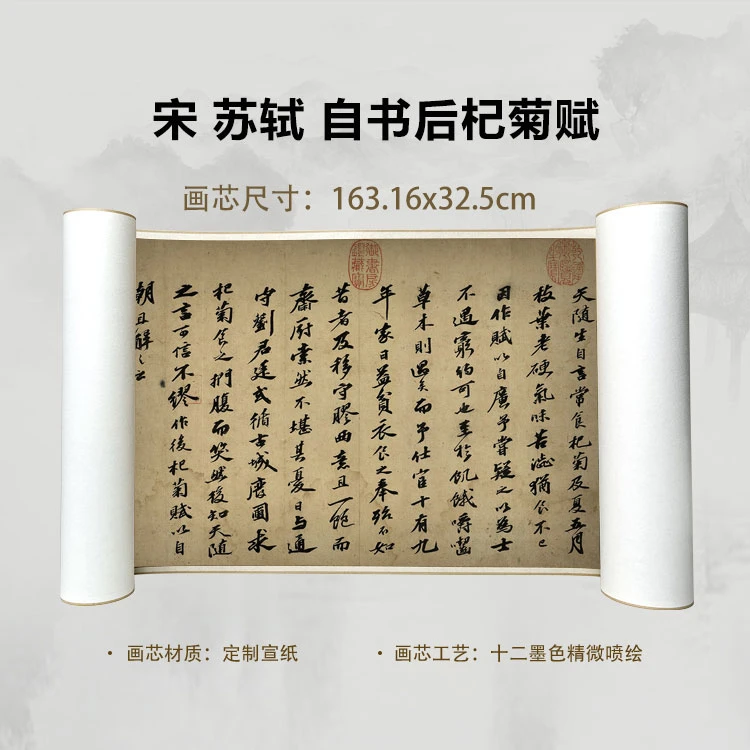 宋 苏轼 自书后杞菊赋
画芯尺寸：163.16x32.5cm
天随生自言常食杞菊及夏五月
枝葉老硬氣味苦澁猶食不已
因作賦以自廣予嘗疑之以為士
不遇窮約可也至於飢餓嚼齧
草木則過矣而予仕宦十有九
年家日益貧衣食之奉殆不如
昔者及移守膠西意且一飽而
齋厨索然不堪其憂日与通
守劉君廷式循古城廢圃求
杞菊食之捫腹而笑然後知天隨
之言可信不繆作後杞菊賦以自
嘲且解之云
· 画芯材质：定制宣纸
· 画芯工艺：十二墨色精微喷绘